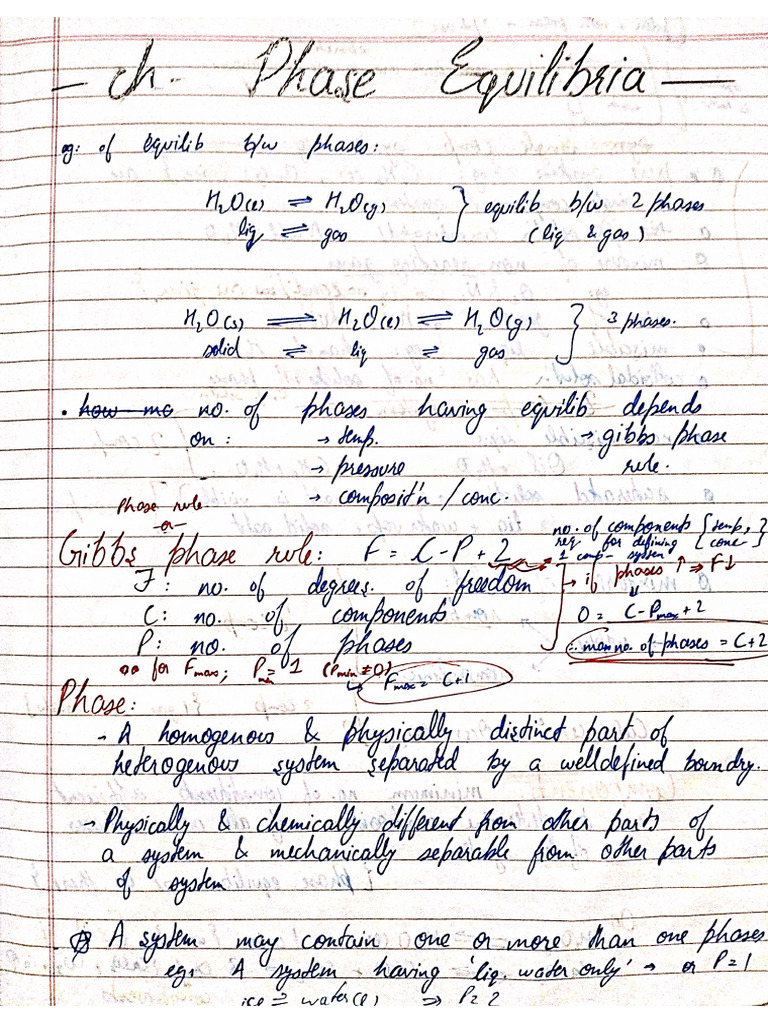 - Ch - Phase Equilibria -
eg: of equilib b/w phases:
H₂O(l) ⇌ H₂O(g) } equilib b/w 2 phases
liq ⇌ gas (liq & gas)
H₂O(s) ⇌ H₂O(l) ⇌ H₂O(g) } 3 phases.
solid ⇌ liq ⇌ gas
• how mo no. of phases having equilib depends
on: → temp. → gibbs phase
→ pressure rule.
→ composit'n / conc.
Phase rule
-or-
Gibbs phase rule: F = C - P + 2
no. of components {temp,
req for defining conc}
1 comp- system
F: no. of degrees. of freedom
C: no. of components
P: no. of phases
→ if phases ↑ ⇒ F↓
0 = C - Pmax + 2
∴ max no. of phases = C+2
for Fmax; Pmin = 1 (Pmin ≠ 0)
↳ Fmax = C+1
Phase:
- A homogenous & physically distinct part of
heterogenous system separated by a welldefined boundry.
→ Physically & chemically different from other parts of
a system & mechanically separable from other parts
of system
A system may contain one or more than one phases
eg: A system having 'liq. water only' → or P=1
ice ⇌ water(l) ⇒ P=2